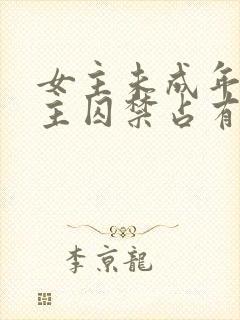 女主未成年
主囚禁占有
李京龍